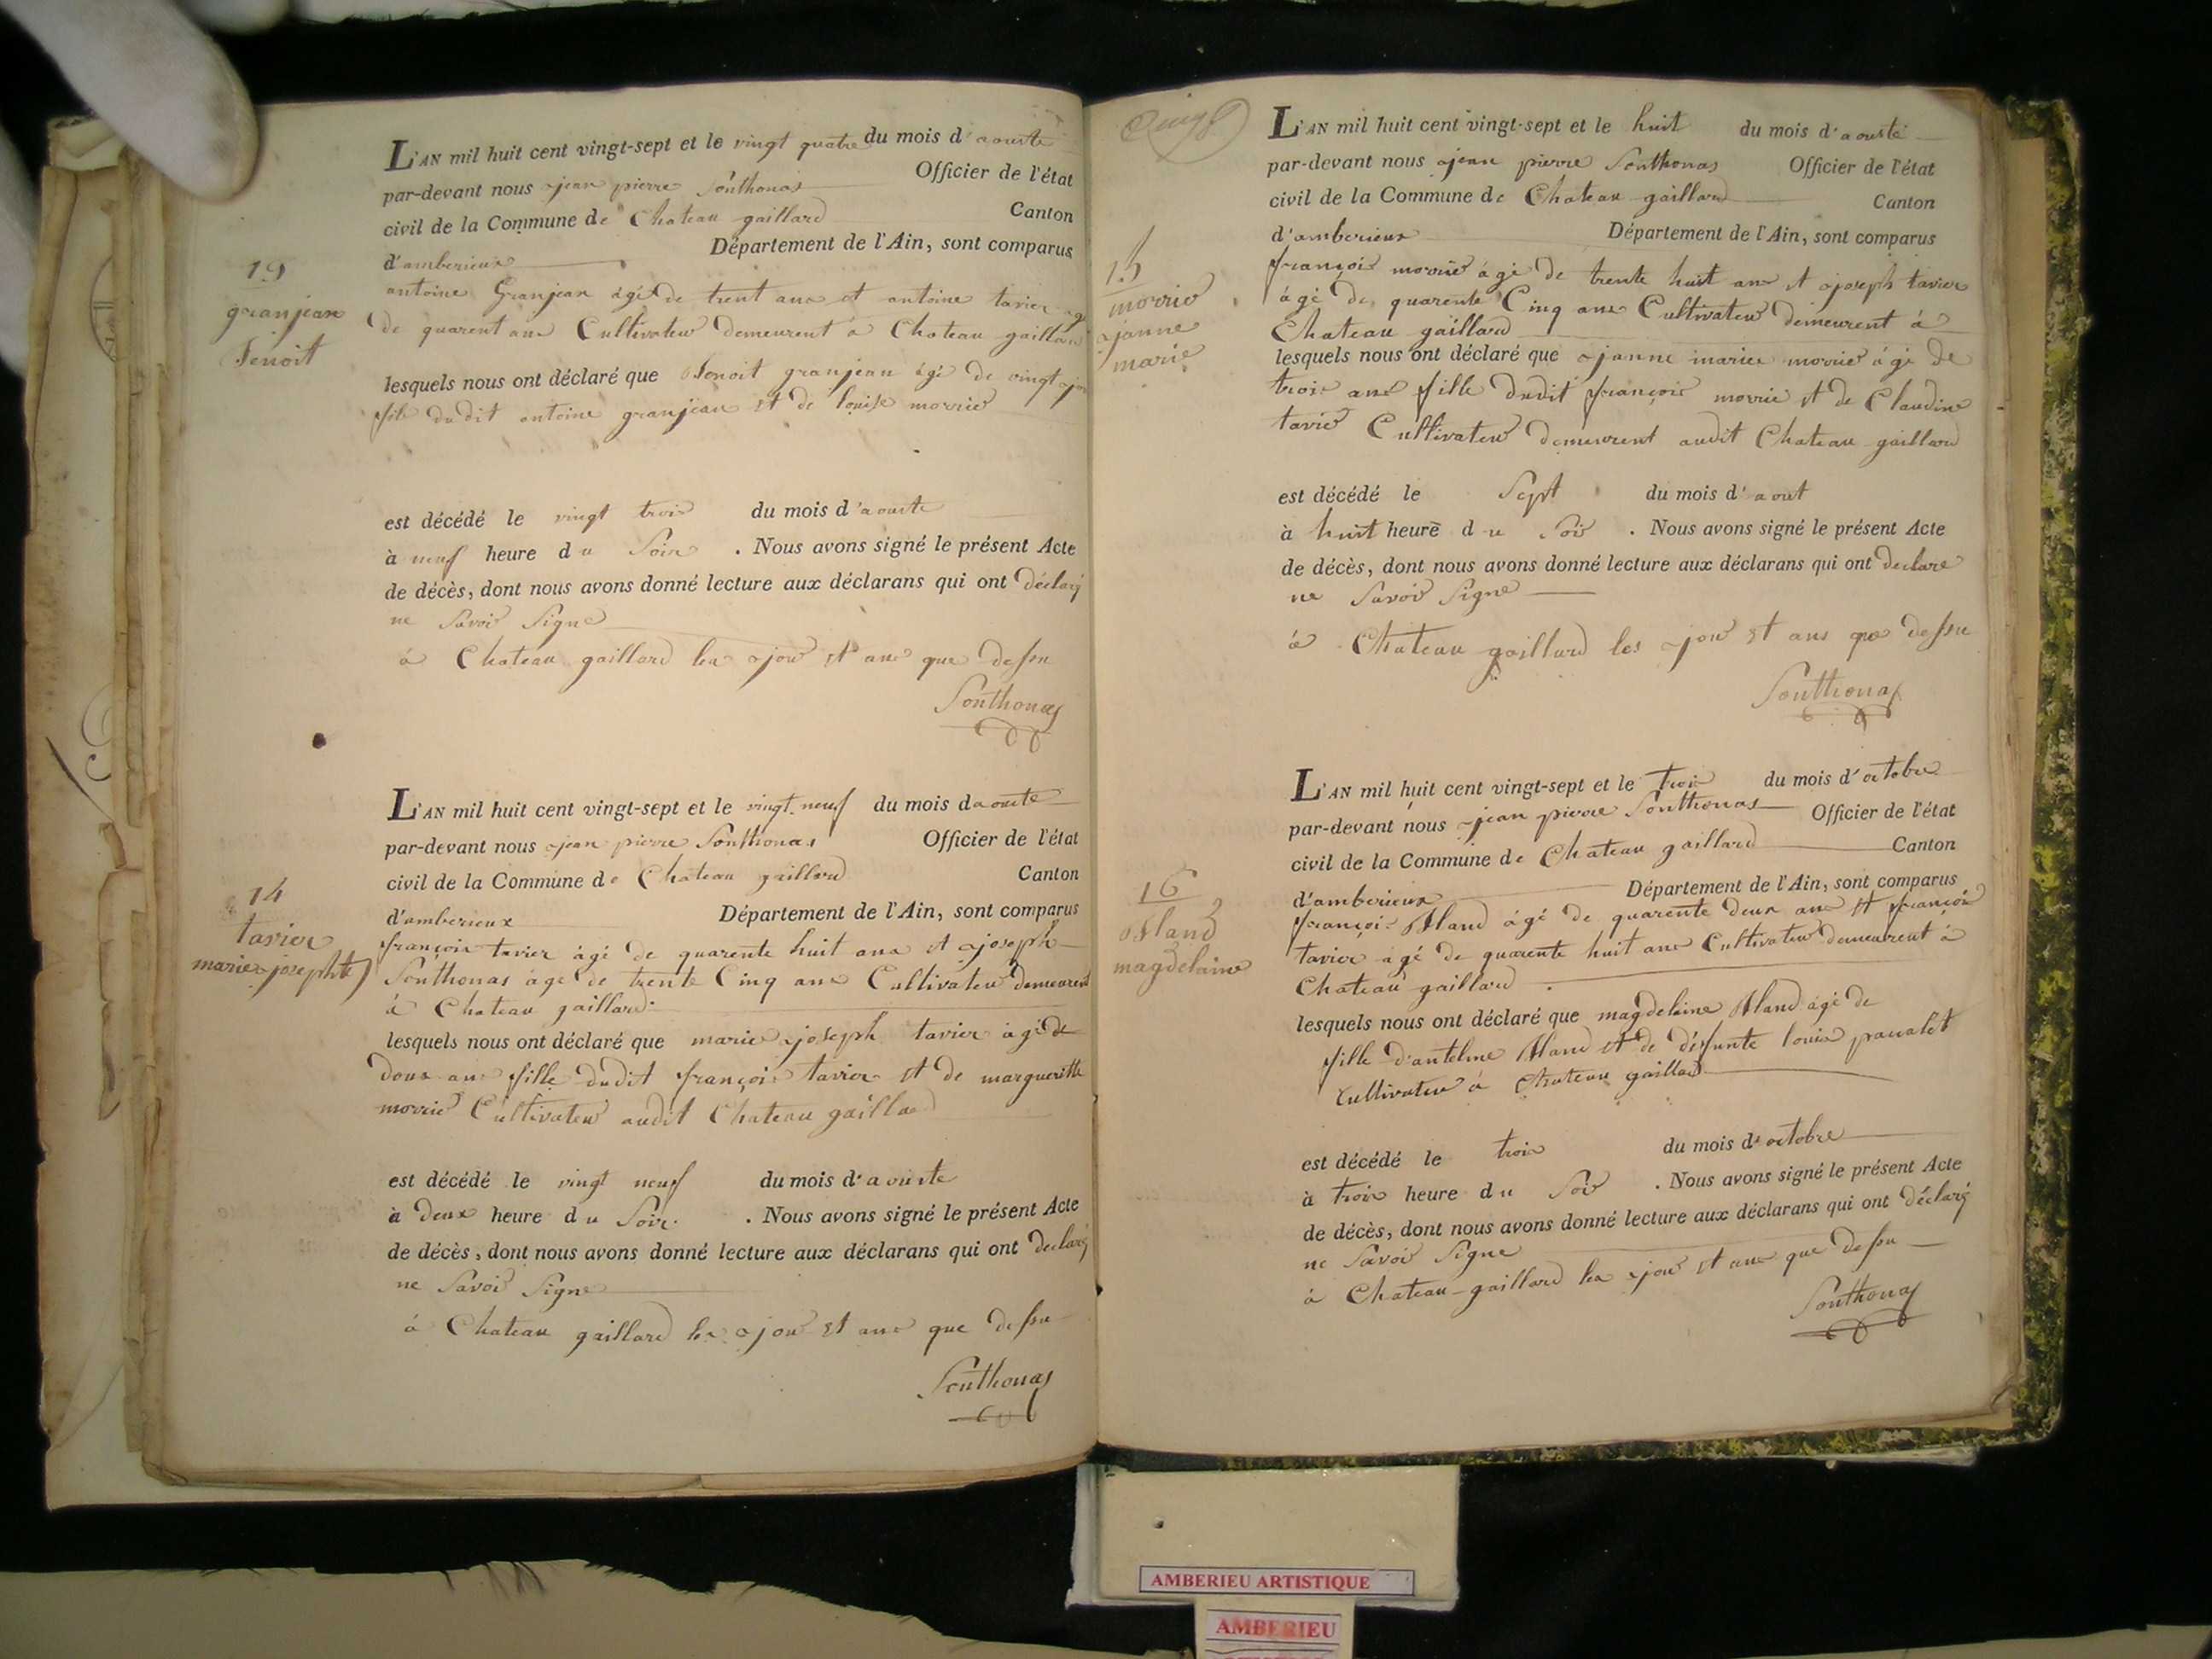 19
granjean
Benoit
L'AN mil huit cent vingt-sept et le vingt quatre du mois d'aouste
par-devant nous jean pierre Sonthonas Officier de l'état
civil de la Commune de Chateau gaillard Canton
d'amberieux Département de l'Ain, sont comparus
antoine Granjean agé de trent ans et antoine tavier
de quarent ans Cultivateur demeurent a Chateau gaillard
lesquels nous ont déclaré que Benoit granjean agé de vingt jour
fils dudit antoine granjean et de louise morrier
est décédé le vingt trois du mois d'aouste
à neuf heure du Soir . Nous avons signé le présent Acte
de décès, dont nous avons donné lecture aux déclarans qui ont déclaré
ne Savoir Signe
a Chateau gaillard les jour et ans que dessu
Sonthonas
14
tavier
marie josephte
L'AN mil huit cent vingt-sept et le vingt neuf du mois daouste
par-devant nous jean pierre Sonthonas Officier de l'état
civil de la Commune de Chateau gaillard Canton
d'amberieux Département de l'Ain, sont comparus
françois tavier àgé de quarente huit ans et joseph
Sonthonas agé de trente Cinq ans Cultivateur demeurent
à Chateau gaillard
lesquels nous ont déclaré que marie joseph tavier àgé de
doux ans fille dudit françois tavier et de margueritte
morrier Cultivateur audit Chateau gaillard
est décédé le vingt neuf du mois d'aouste
à deux heure du Soir. . Nous avons signé le présent Acte
de décès, dont nous avons donné lecture aux déclarans qui ont declaré
ne Savoir Signe
à Chateau gaillard les jour et ans que dessu
Sonthonas
15
morrier
janne
marie
L'AN mil huit cent vingt-sept et le huit du mois d'aouste
par-devant nous jean pierre Sonthonas Officier de l'état
civil de la Commune de Chateau gaillard Canton
d'amberieux Département de l'Ain, sont comparus
françois morrier àgé de trente huit ans et joseph tavier
àgé de quarente Cinq ans Cultivateur demeurent à
Chateau gaillard
lesquels nous ont déclaré que janne mariee morrier àgé de
trois ans fille dudit françois morrier et de Claudine
tavier Cultivateur demeurent audit Chateau gaillard
est décédé le Sept du mois d'aout
à huit heure du Soir . Nous avons signé le présent Acte
de décès, dont nous avons donné lecture aux déclarans qui ont declaré
ne Savoir Signe
à Chateau gaillard les jour et ans que dessu
Sonthonas
16
magdelaine
L'AN mil huit cent vingt-sept et le trois du mois d'octobre
par-devant nous jean pierre Sonthonas Officier de l'état
civil de la Commune de Chateau gaillard Canton
d'amberieux Département de l'Ain, sont comparus
françois àgé de quarente deux ans et françois
tavier agé de quarente huit ans Cultivateur demeurent à
Chateau gaillard
lesquels nous ont déclaré que magdelaine agé de
fille d'antelme et de défunte louise
Cultivateur à Chateau gaillard
est décédé le trois du mois d'octobre
à trois heure du Soir . Nous avons signé le présent Acte
de décès, dont nous avons donné lecture aux déclarans qui ont déclaré
ne Savoir Signe
à Chateau-gaillard les jour et ans que dessu
Sonthonas
AMBERIEU ARTISTIQUE
AMBERIEU